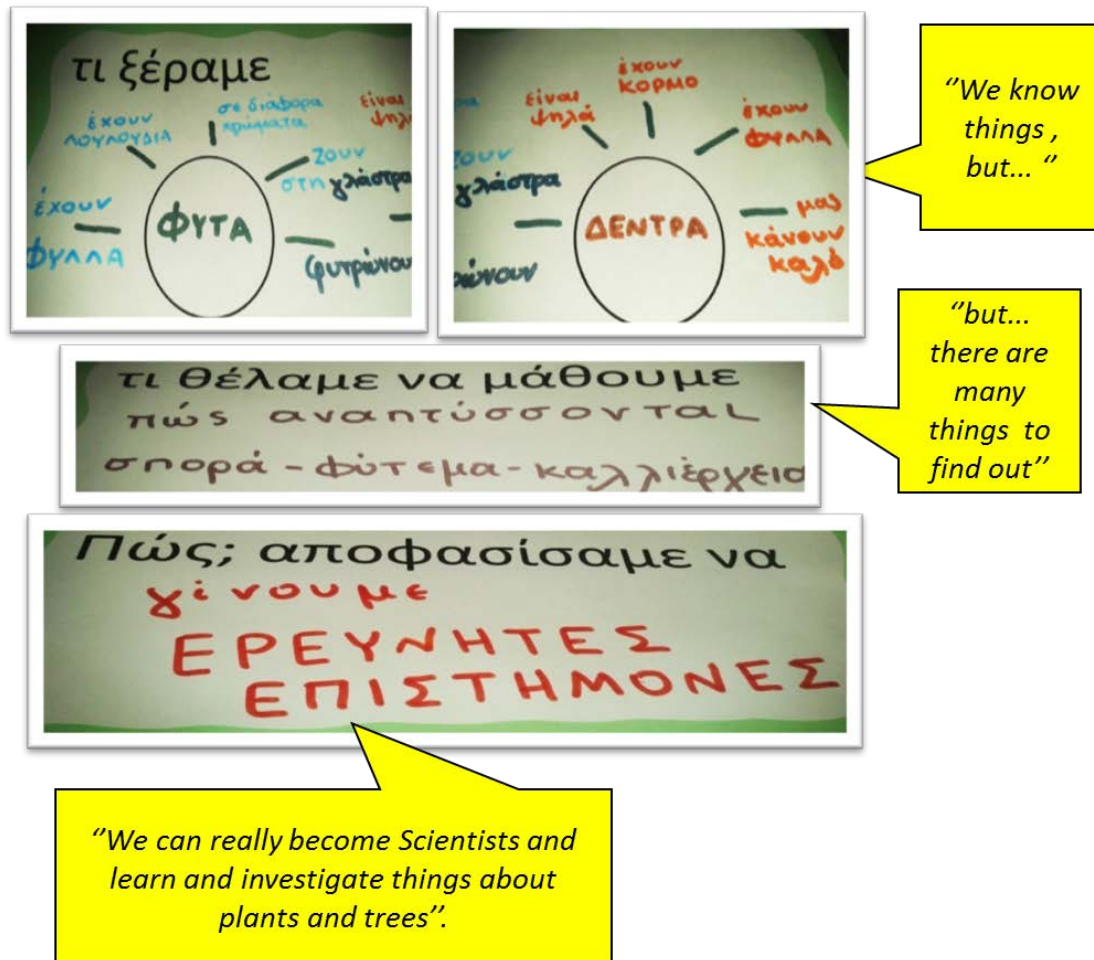 τι ξέραμε
έχουν
ΛΟΥΛΟΥΔΙΑ
σε διάφορα
χρώματα
είναι
ψηλά
ζουν
στη γλάστρα
έχουν
ΦΥΛΛΑ
ΦΥΤΑ
φυτρώνουν
είναι
ψηλά
έχουν
ΚΟΡΜΟ
έχουν
ΦΥΛΛΑ
ζουν
γλάστρα
ΔΕΝΤΡΑ
μας
κάνουν
καλό
ώνουν
"We know
things ,
but... "
τι θέλαμε να μάθουμε
πώς αναπτύσσονται
σπορά - φύτεμα - καλλιέργεια
"but...
there are
many
things to
find out"
Πώς; αποφασίσαμε να
γίνουμε
ΕΡΕΥΝΗΤΕΣ
ΕΠΙΣΤΗΜΟΝΕΣ
"We can really become Scientists and
learn and investigate things about
plants and trees".